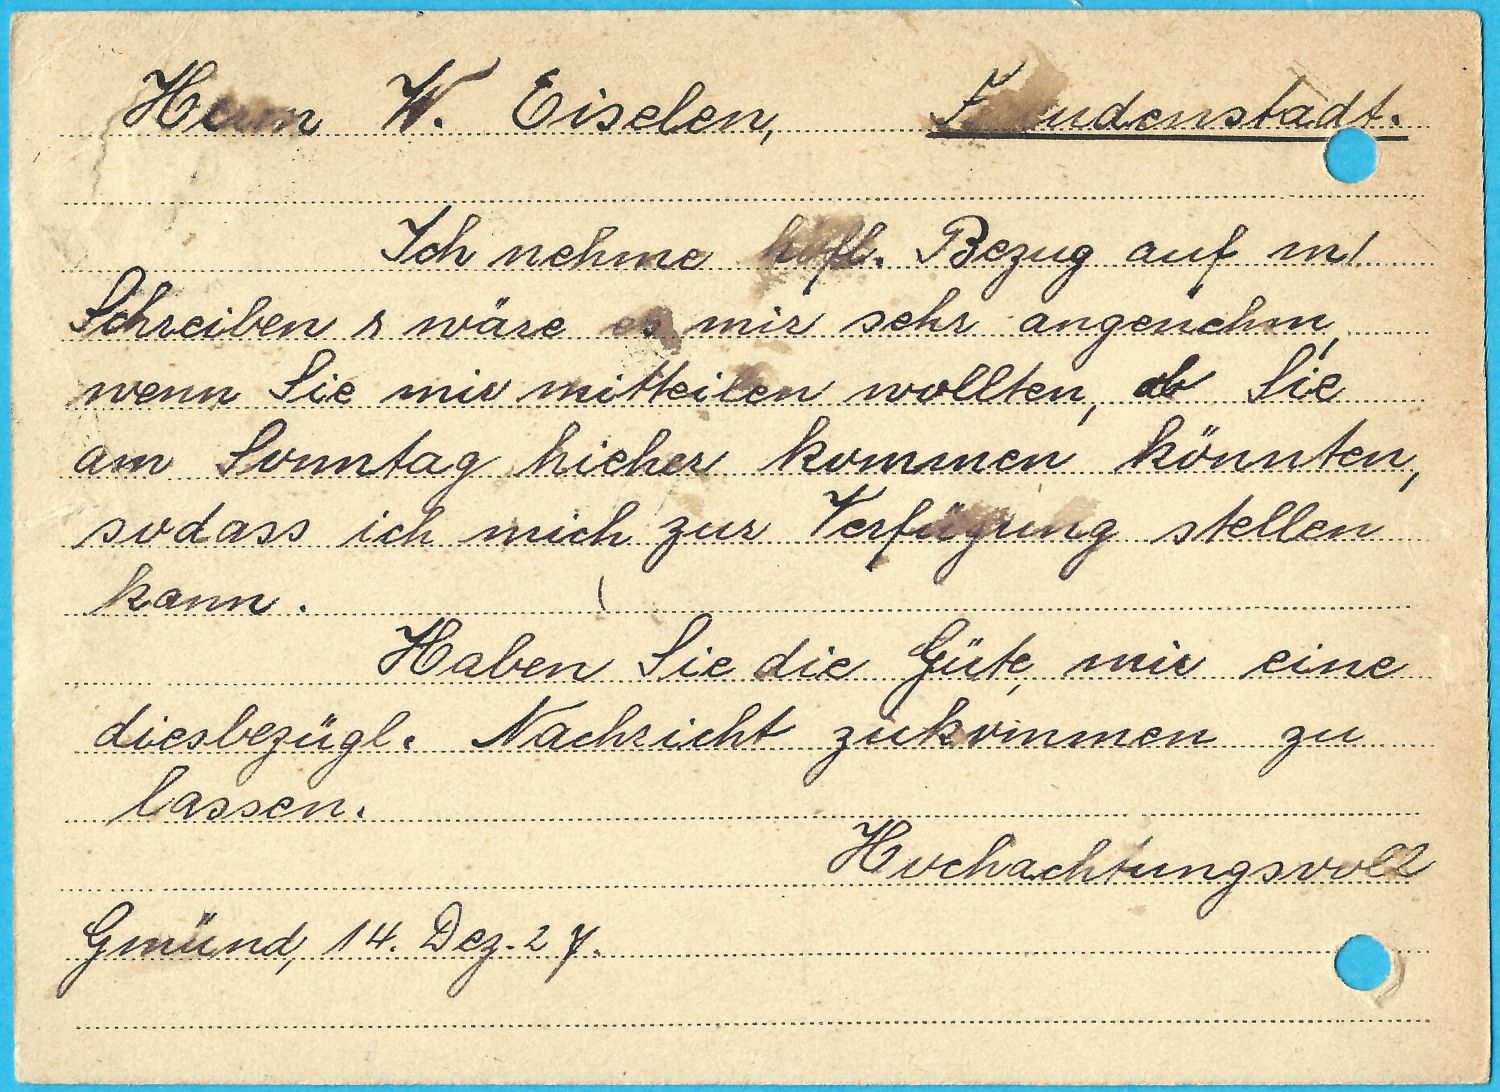 Herrn W. Eiselen, Freudenstadt.
Ich nehme höfl. Bezug auf m/
Schreiben & wäre es mir sehr angenehm,
wenn Sie mir mitteilen wollten, ob Sie
am Sonntag hieher kommen könnten,
sodass ich mich zur Verfügung stellen
kann.
Haben Sie die Güte, mir eine
diesbezügl. Nachricht zukommen zu
lassen.
Hochachtungsvoll
Gmünd, 14. Dez. 27.